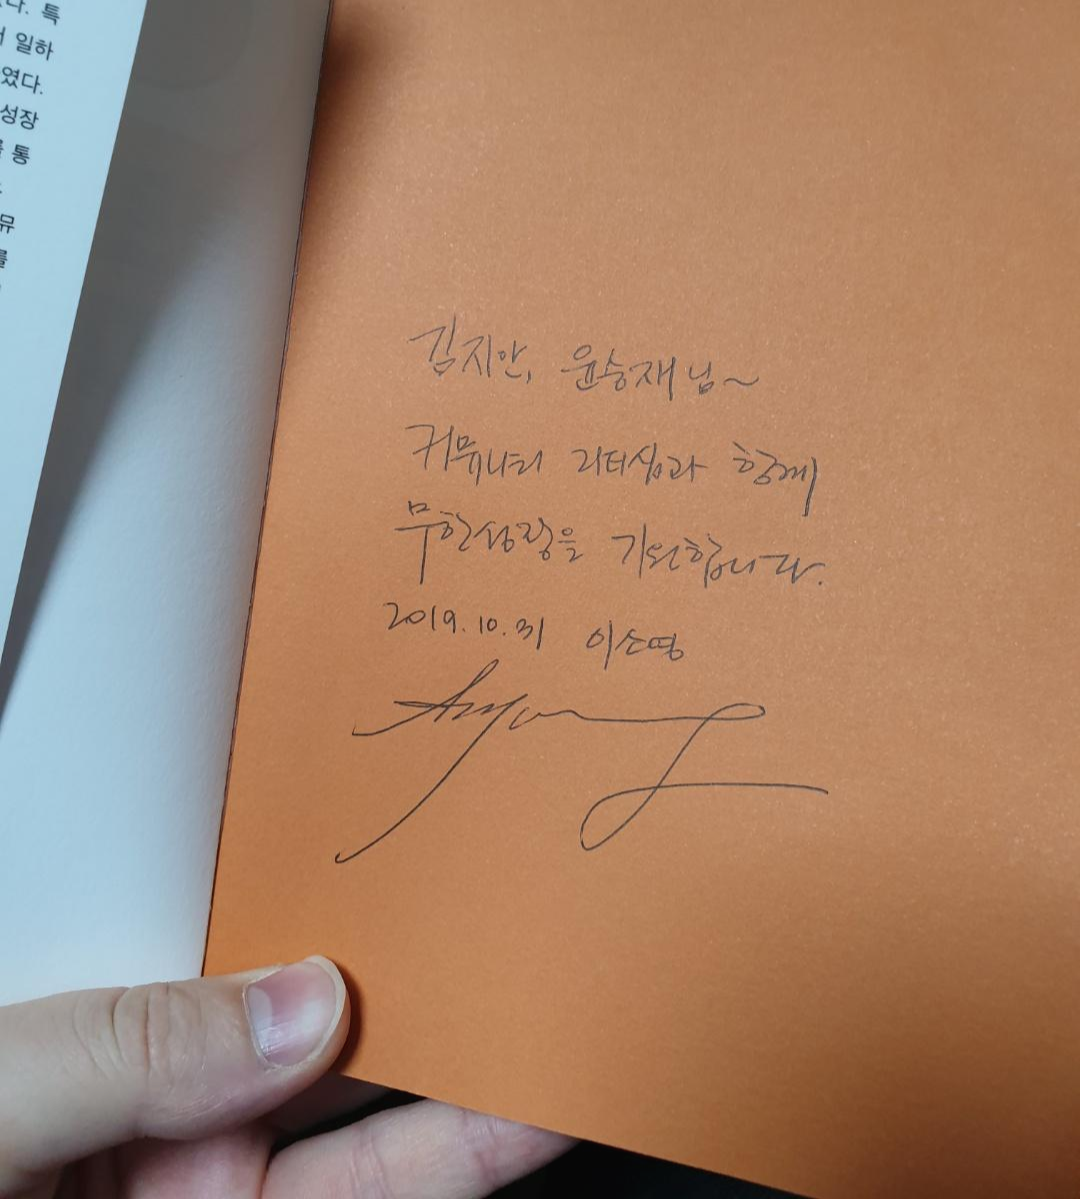 다. 특
일하
였다.
성장
통
뮤
를
김지안, 윤승재님~
커뮤니티 리더십과 함께
무한성장을 기원합니다.
2019.10.31 이소영